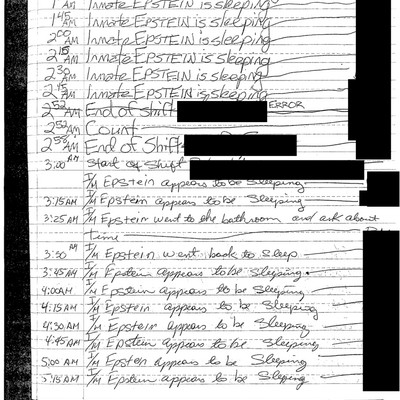 1 AM Inmate EPSTEIN is sleeping
1 45 AM Inmate EPSTEIN is sleeping
2 00 AM Inmate EPSTEIN is sleeping
2 15 AM Inmate EPSTEIN is sleeping
2 30 AM Inmate EPSTEIN is sleeping
2 45 AM Inmate EPSTEIN is sleeping
2 52 AM End of Shift ERROR
2 52 AM Count
2 56 AM End of Shift
3:00 AM Start of Shift
I/M Epstein appears to be sleeping
3:15 AM I/M Epstein appears to be sleeping
3:25 AM I/M Epstein went to the bathroom and ask about
time
3:30 AM I/M Epstein went back to sleep
3:45 AM I/M Epstein appears to be sleeping.
4:00 AM I/M Epstein appears to be sleeping
4:15 AM I/M Epstein appears to be sleeping
4:30 AM I/M Epstein appears to be sleeping
4:45 AM I/M Epstein appears to be sleeping
5:00 AM I/M Epstein appears to be sleeping
5:15 AM I/M Epstein appears to be sleeping